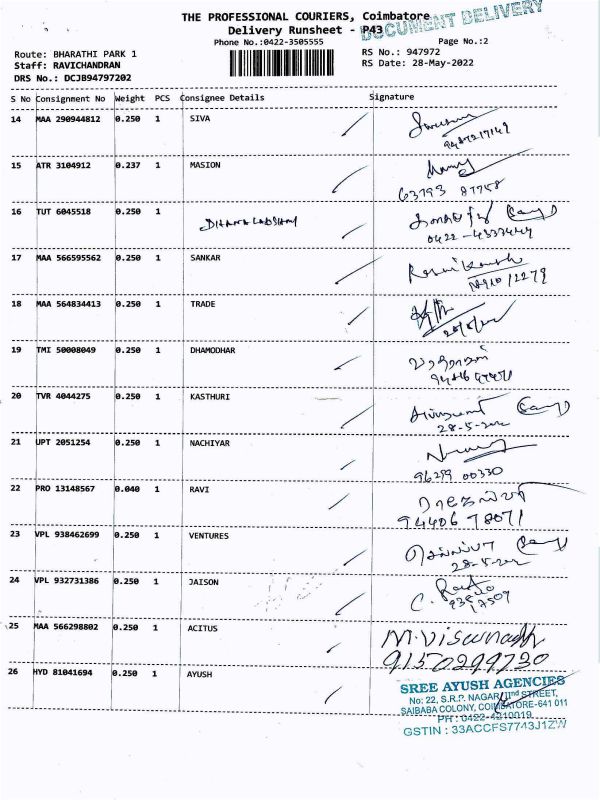 THE PROFESSIONAL COURIERS, Coimbatore
DOCUMENT DELIVERY
Delivery Runsheet - P43
Phone No.:0422-3505555
Page No.:2
Route: BHARATHI PARK 1
RS No.: 947972
Staff: RAVICHANDRAN
RS Date: 28-May-2022
DRS No.: DCJB94797202
S No Consignment No Weight PCS Consignee Details Signature
14 MAA 290944812 0.250 1 SIVA
15 ATR 3104912 0.237 1 MASION
63793 87758
16 TUT 6045518 0.250 1 DHANALAKSHMI
17 MAA 566595562 0.250 1 SANKAR
18 MAA 564834413 0.250 1 TRADE
19 TMI 50008049 0.250 1 DHAMODHAR
20 TVR 4044275 0.250 1 KASTHURI
21 UPT 2051254 0.250 1 NACHIYAR
96299 00330
22 PRO 13148567 0.040 1 RAVI
94406 78071
23 VPL 938462699 0.250 1 VENTURES
24 VPL 932731386 0.250 1 JAISON
25 MAA 566298802 0.250 1 ACITUS
M.Viswanath
9150299730
26 HYD 81041694 0.250 1 AYUSH
SREE AYUSH AGENCIES
No: 22, S.R.P. NAGAR, IInd STREET,
SAIBABA COLONY, COIMBATORE-641 011
PH : 0422-4210019
GSTIN : 33ACCFS7743J1ZW